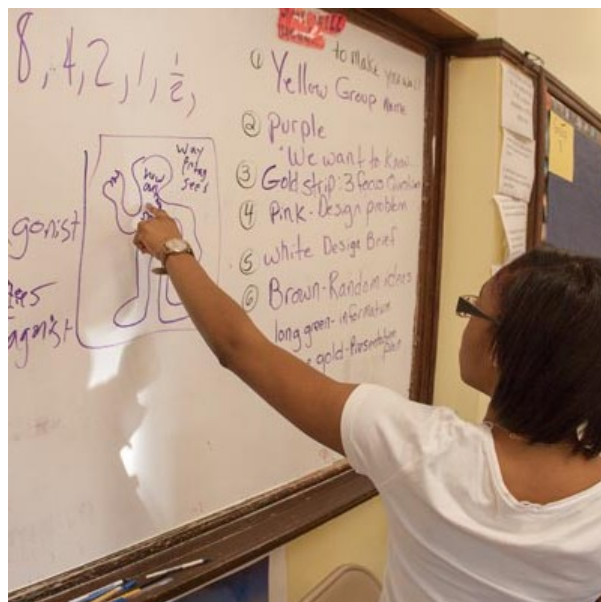 8, 4, 2, 1, 1/2,
agonist
sees
agonist
way
protag
see's
how
to make your wall
① Yellow Group Name
② Purple
"We want to know
③ Gold strip: 3 focus Questions
④ Pink - Design problem
⑤ white Design Brief
⑥ Brown - Random ideas
long green - information
gold - Presentation
plan